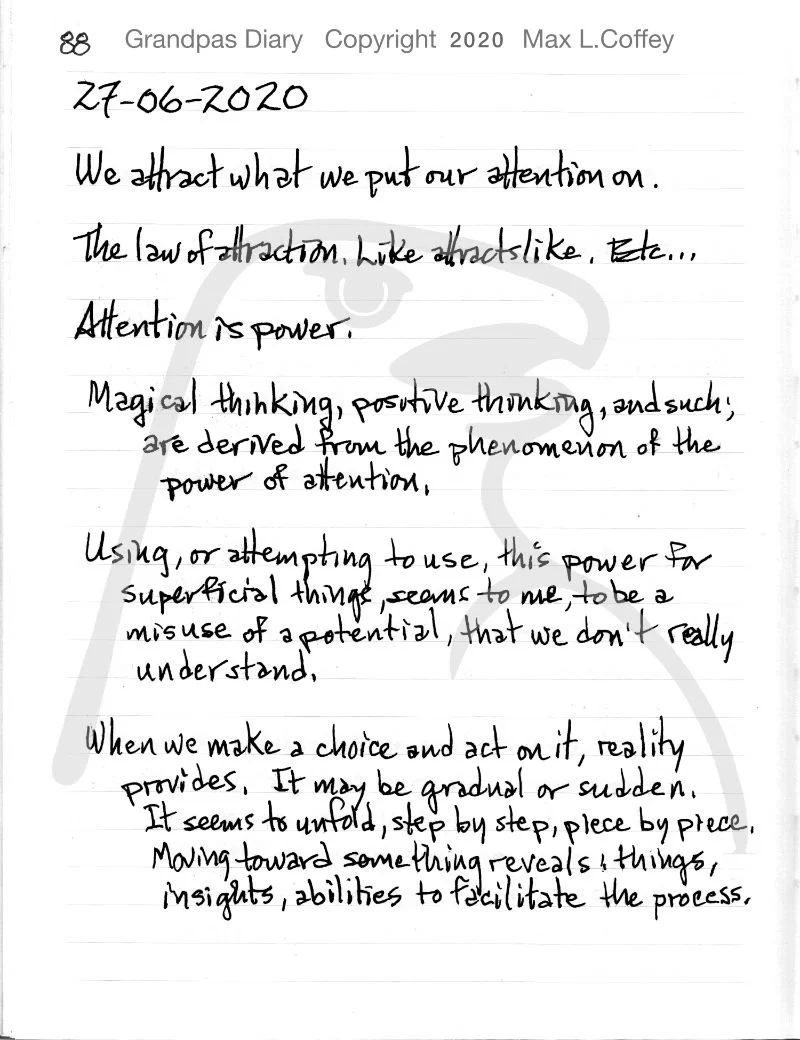 88 Grandpas Diary Copyright 2020 Max L.Coffey
27-06-2020
We attract what we put our attention on.
The law of attraction. Like attracts like. Etc...
Attention is power.
Magical thinking, positive thinking, and such;
are derived from the phenomenon of the
power of attention.
Using, or attempting to use, this power for
superficial things, seems to me, to be a
misuse of a potential, that we don't really
understand.
When we make a choice and act on it, reality
provides. It may be gradual or sudden.
It seems to unfold, step by step, piece by piece.
Moving toward something reveals: things,
insights, abilities to facilitate the process.